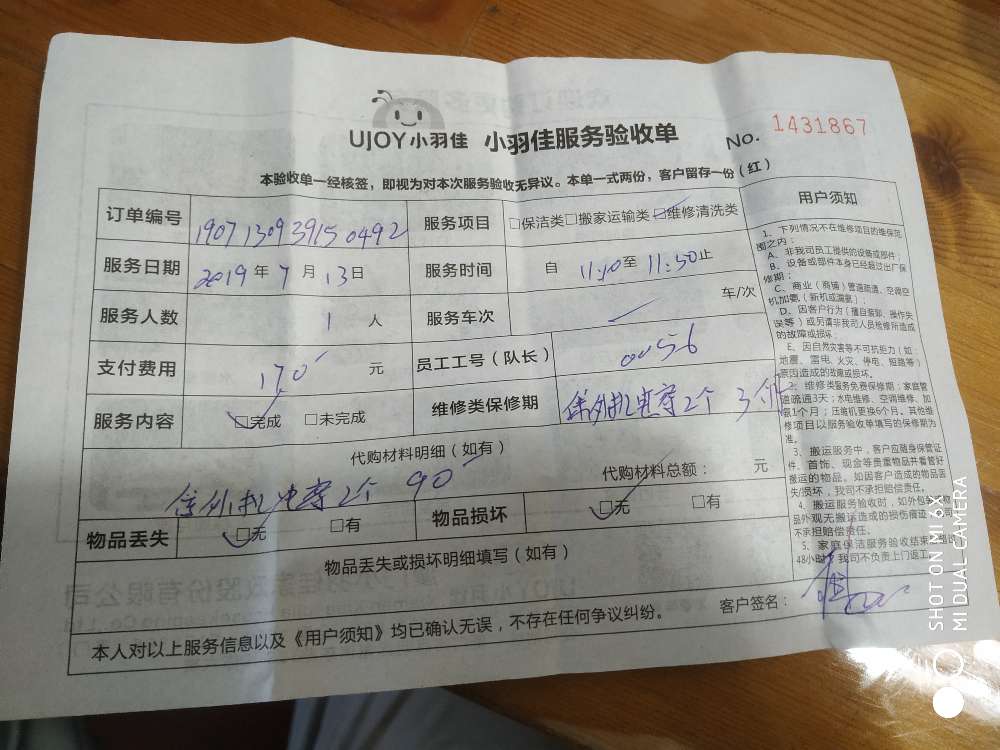 UJOY小羽佳 小羽佳服务验收单 No. 1431867
本验收单一经核签，即视为对本次服务验收无异议。本单一式两份，客户留存一份（红）
订单编号 190713093950492 服务项目 □保洁类□搬家运输类☑维修清洗类
服务日期 2019年7月13日 服务时间 自 11:10至11:50止
服务人数 1 人 服务车次 车/次
支付费用 170 元 员工工号（队长） 0056
服务内容 ☑完成 □未完成 维修类保修期 外机电容2个 3个
代购材料明细（如有）
外机电容2个 90 代购材料总额： 元
物品丢失 ☑无 □有 物品损坏 ☑无 □有
物品丢失或损坏明细填写（如有）
客户签名：
本人对以上服务信息以及《用户须知》均已确认无误，不存在任何争议纠纷。
用户须知
1、下列情况不在维修项目的维保范
围之内：
A、非我司员工提供的设备或部件；
B、设备或部件本身已经超过出厂保
修期；
C、商业（商铺）管道疏通、空调空
机加氟（新机或漏氟）；
D、因客户行为（擅自装卸、操作失
误等）或另请非我司人员检修所造成
的故障或损坏；
E、因自然灾害等不可抗拒力（如：
地震、雷电、火灾、停电、短路等）
原因造成的故障或损坏。
2、维修类服务免费保修期：家庭管
道疏通3天；水电维修、空调维修、加
氨1个月；压缩机更换6个月。其他维
修项目以服务验收单填写的保修期为
准。
3、搬运服务中，客户应随身保管证
件、首饰、现金等贵重物品并看管好
搬运的物品。如因客户造成的物品丢
失/损坏，我司不承担赔偿责任。
4、搬运服务验收时，如外包
品外观无搬运造成的损伤痕迹 司
不承担赔偿责任。
5、家庭保洁服务验收结束
48小时 我司不负责上门返工。
SHOT ON MI 6X
MI DUAL CAMERA